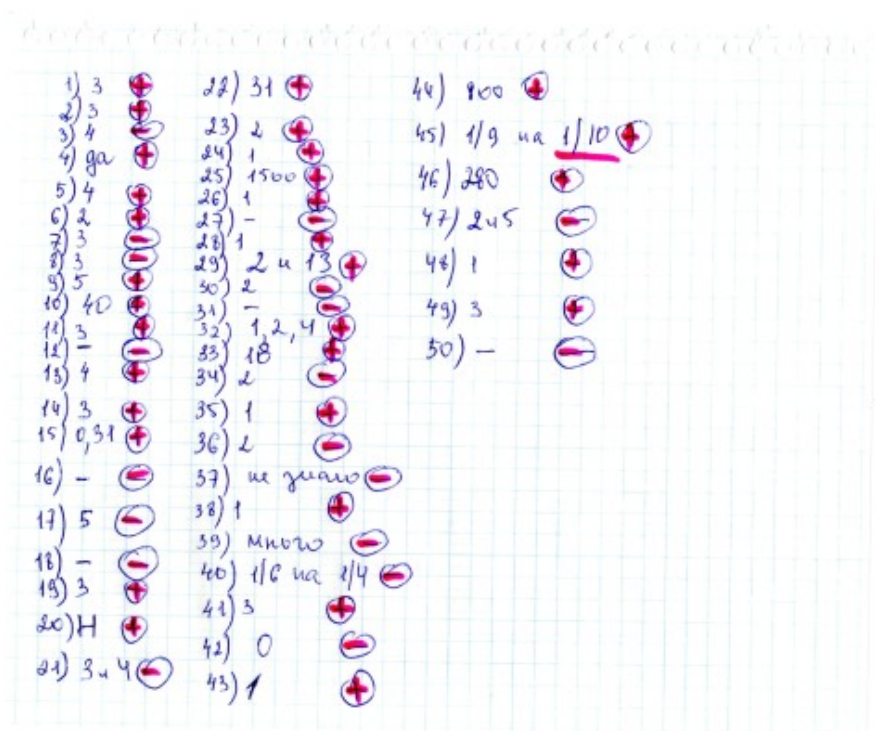 1) 3 +
2) 3 +
3) 4 -
4) да +
5) 4 +
6) 2 +
7) 3 -
8) 3 -
9) 5 +
10) 40 +
11) 3 +
12) - -
13) 4 +
14) 3 +
15) 0,31 +
16) - -
17) 5 -
18) - -
19) 3 +
20) Н +
21) 3 и 4 -
22) 31 +
23) 2 +
24) 1 +
25) 1500 +
26) 1 +
27) - -
28) 1 +
29) 2 и 13 +
30) 2 -
31) - -
32) 1, 2, 4 +
33) 18 +
34) 2 -
35) 1 +
36) 2 -
37) не знаю -
38) 1 +
39) много -
40) 1/6 на 1/4 -
41) 3 +
42) 0 -
43) 1 +
44) 800 +
45) 1/9 на 1/10 +
46) 280 +
47) 2 и 5 -
48) 1 +
49) 3 +
50) - -